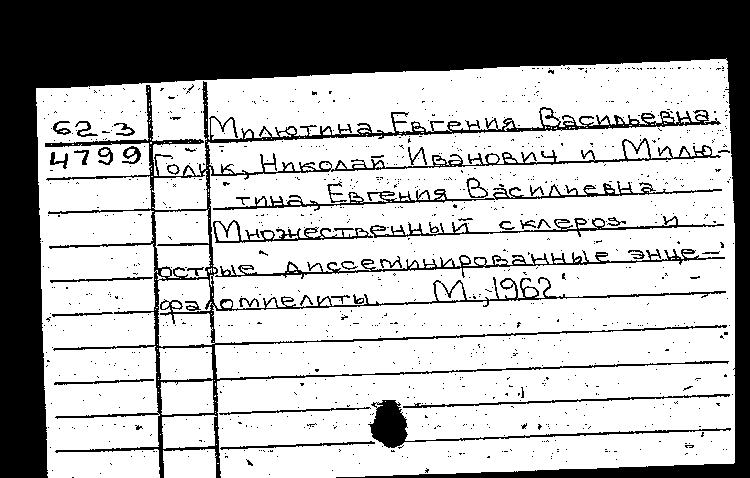 62-3 Милютина, Евгения Васильевна.
4799 Голик, Николай Иванович и Милю-
тина, Евгения Васильевна
Множественный склероз и
острые диссеминированные энце-
фаломиелиты. М., 1962.